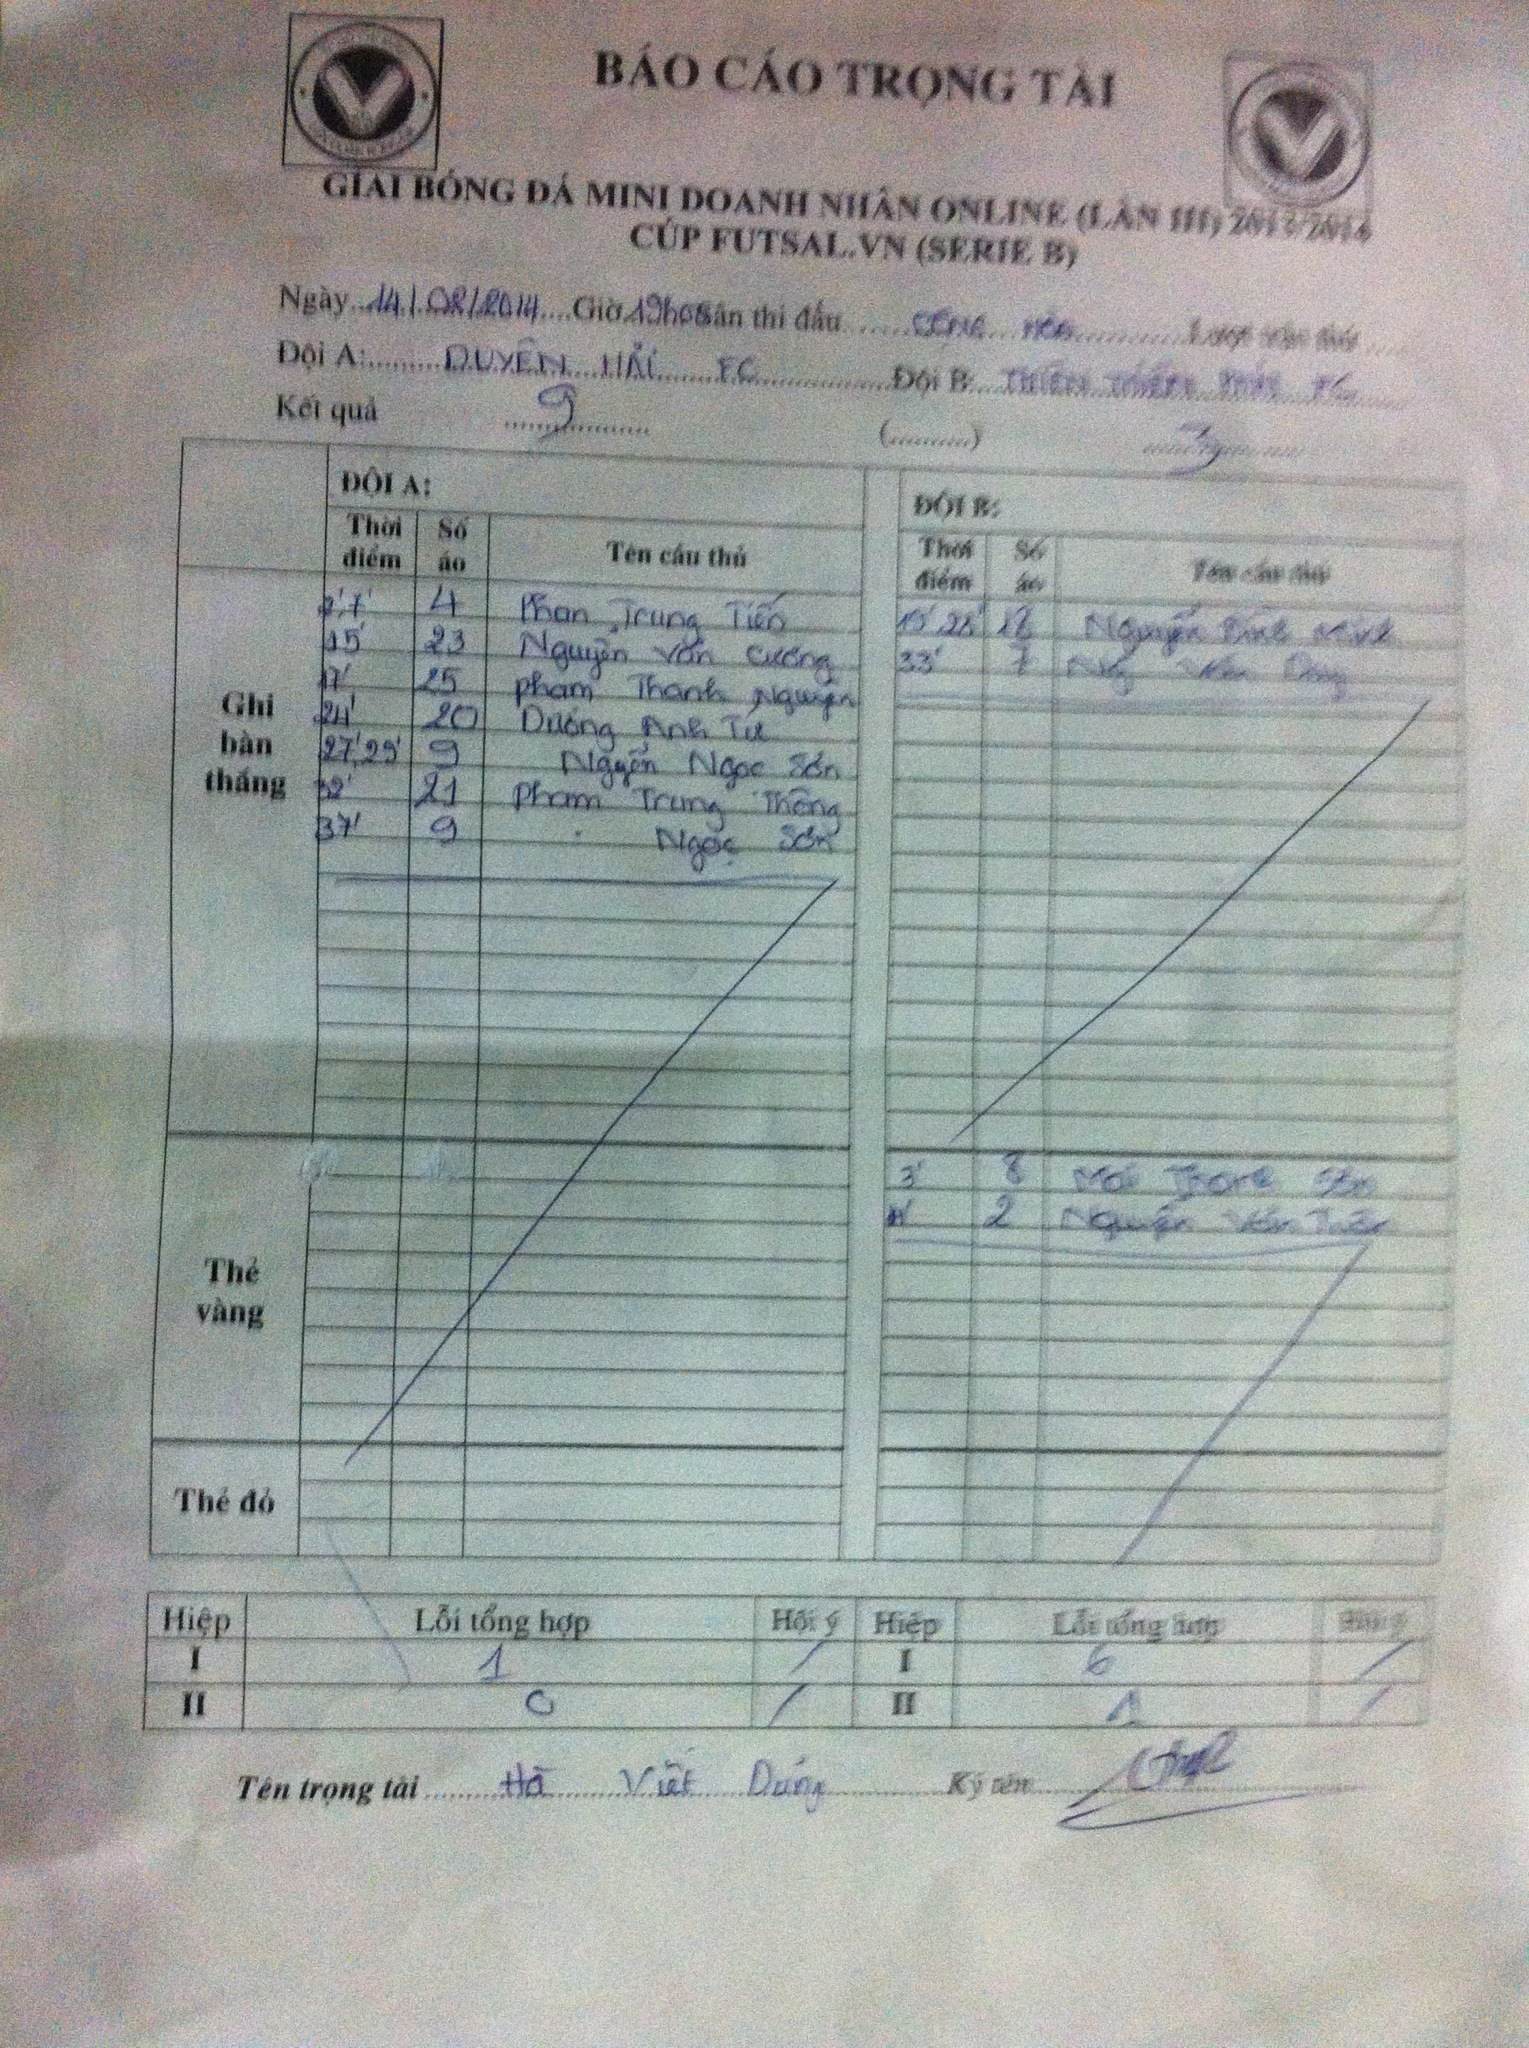 BÁO CÁO TRỌNG TÀI
GIẢI BÓNG ĐÁ MINI DOANH NHÂN ONLINE (LẦN III) 2013/2014
CÚP FUTSAL.VN (SERIE B)
Ngày 14/02/2014 Giờ 19h05 Sân thi đấu CỘNG HÒA
Đội A: DUYÊN HẢI FC Đội B: THIÊN
Kết quả 9 (..........) 3
ĐỘI A: ĐỘI B:
Thời điểm Số áo Tên cầu thủ Thời điểm Số áo Tên cầu thủ
Ghi bàn thắng
2',7' 4 Phan Trung Tiến Nguyễn Minh
15' 23 Nguyễn Văn Cương 33' 7 Văn
17' 25 Phạm Thanh Nguyên
24' 20 Dương Anh Tú
27',29' 9 Nguyễn Ngọc Sơn
32' 21 Phạm Trung Thông
37' 9 Ngọc Sơn
Thẻ vàng
3' 8 Mai Thanh Sơn
2 Nguyễn Văn Tuấn
Thẻ đỏ
Hiệp Lỗi tổng hợp Hội ý Hiệp Lỗi tổng hợp Hội ý
I 1 / I 6 /
II 0 / II 1 /
Tên trọng tài Hà Việt Dũng Ký tên